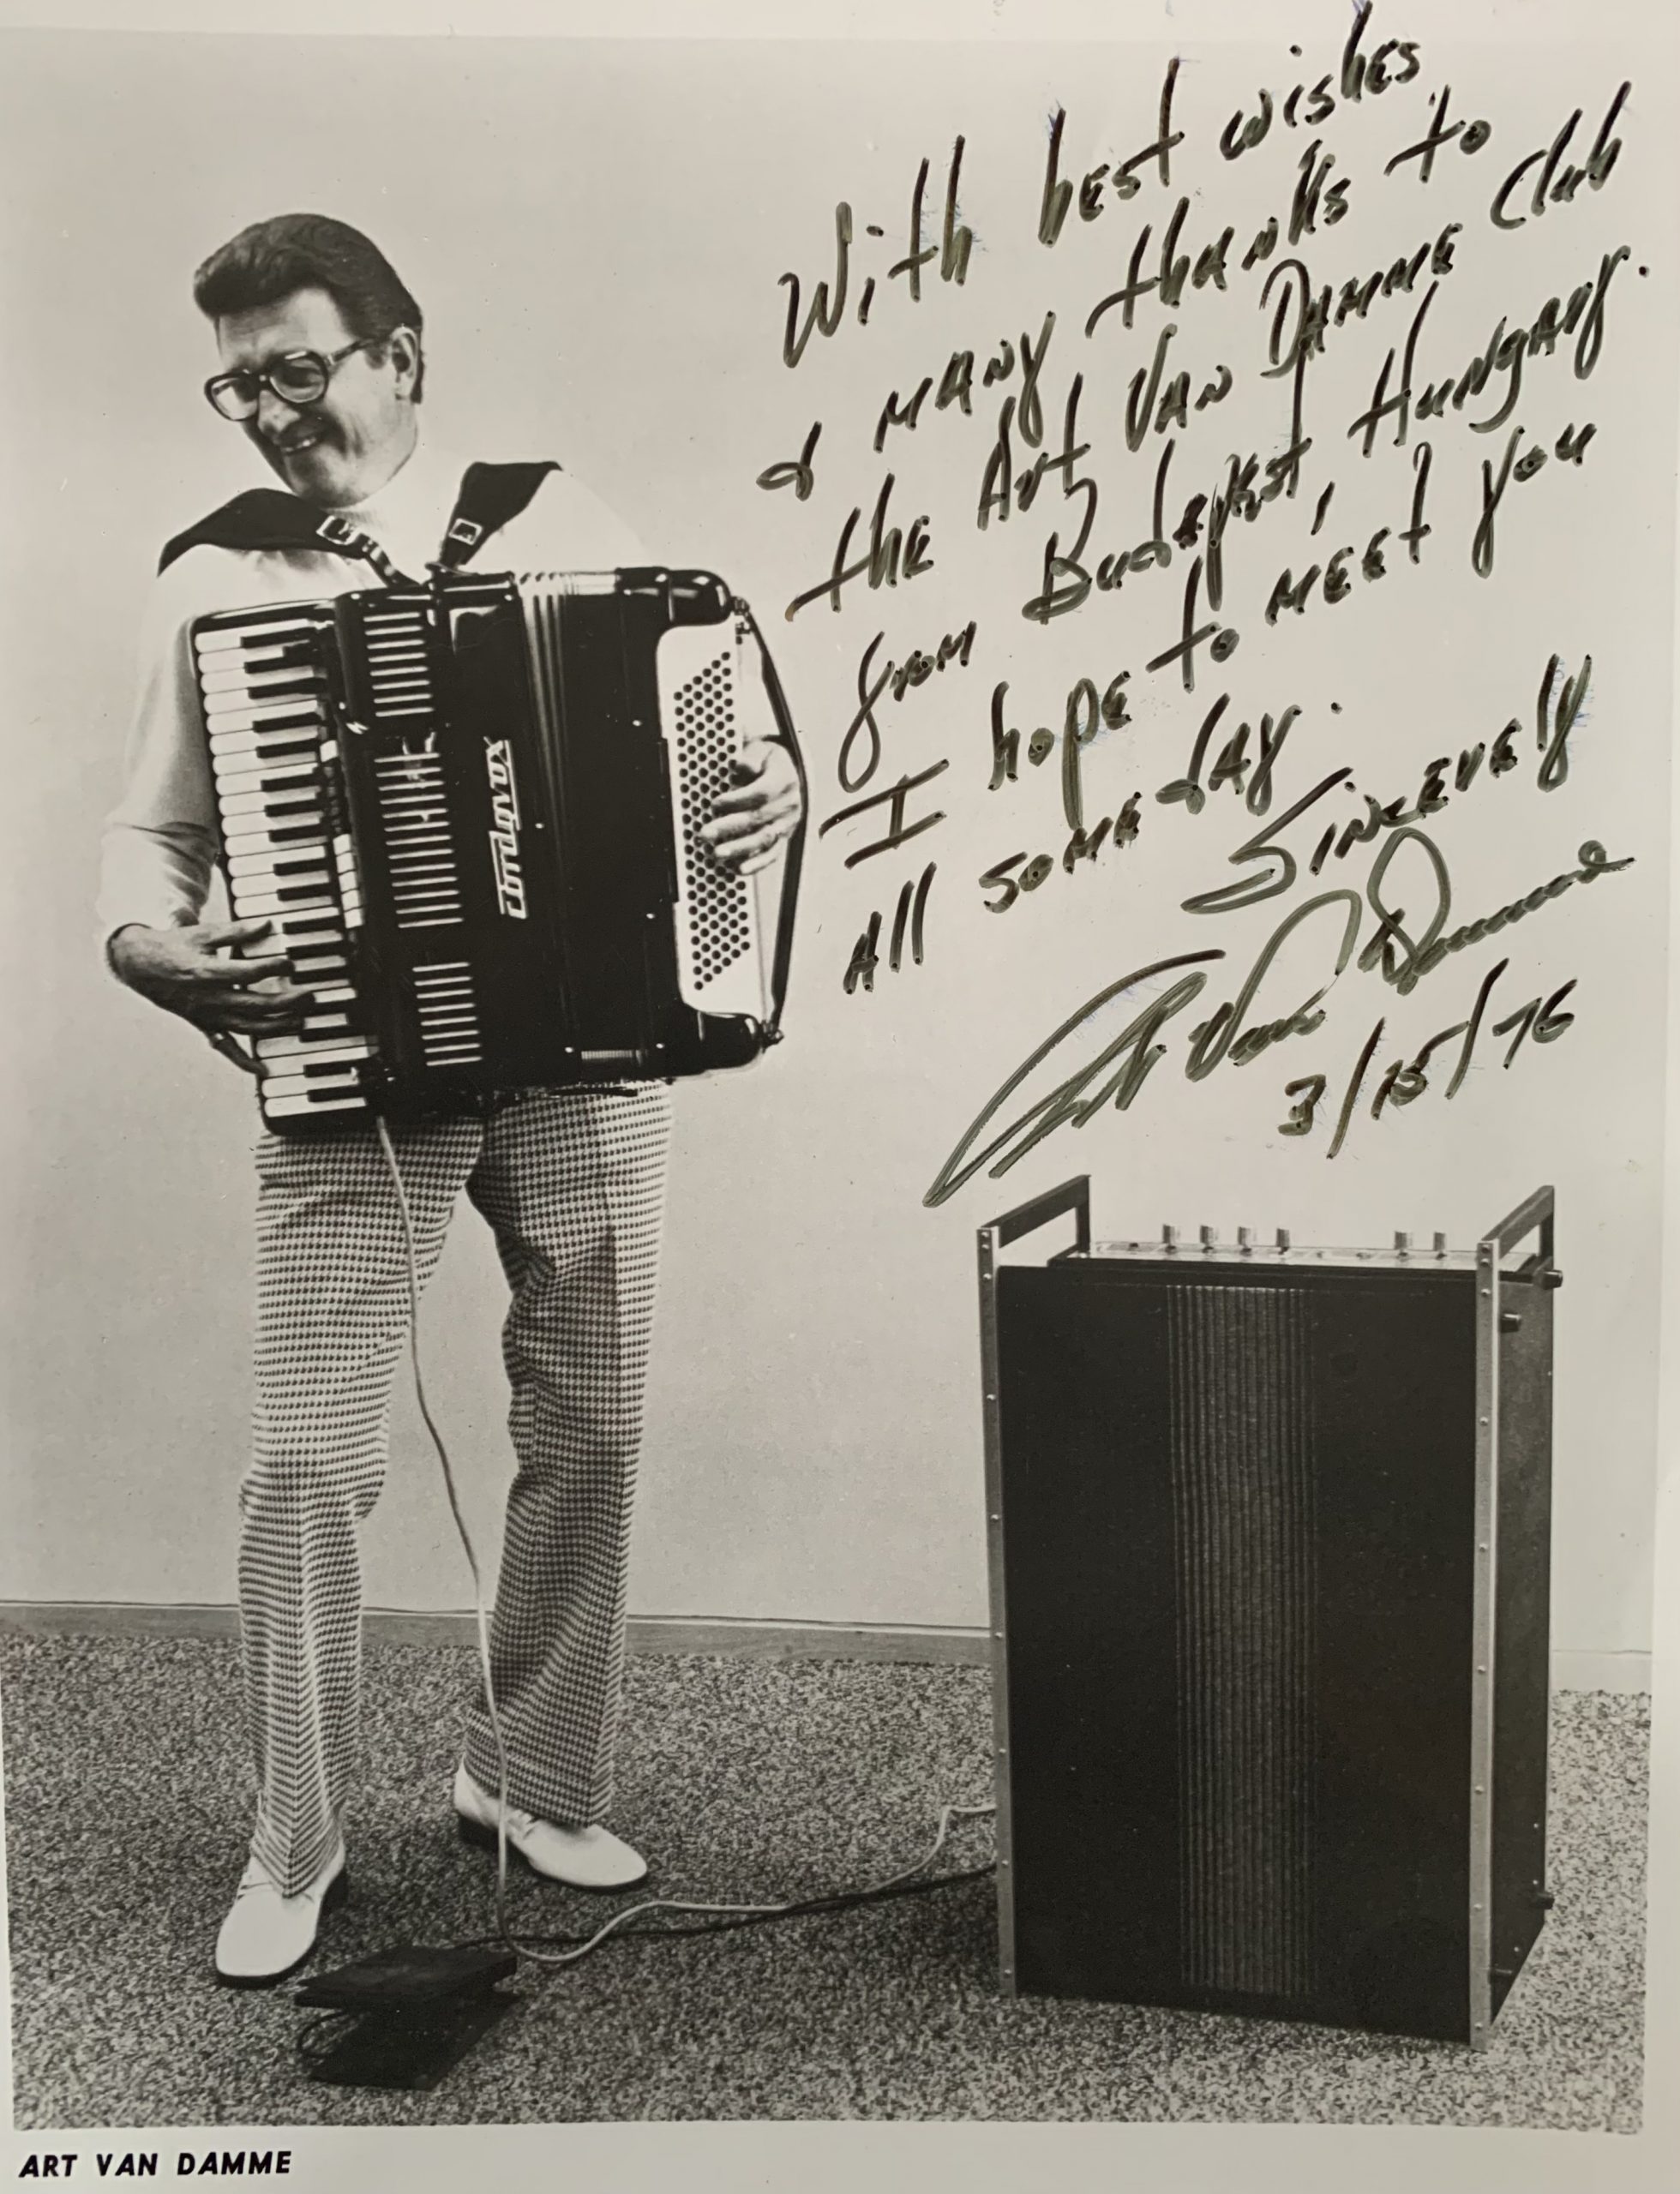 With best wishes
& many thanks to
the Art Van Damme Club
from Budapest, Hungary.
I hope to meet you
all some day.
Sincerely
Art Van Damme
3/15/76
Cordovox
ART VAN DAMME